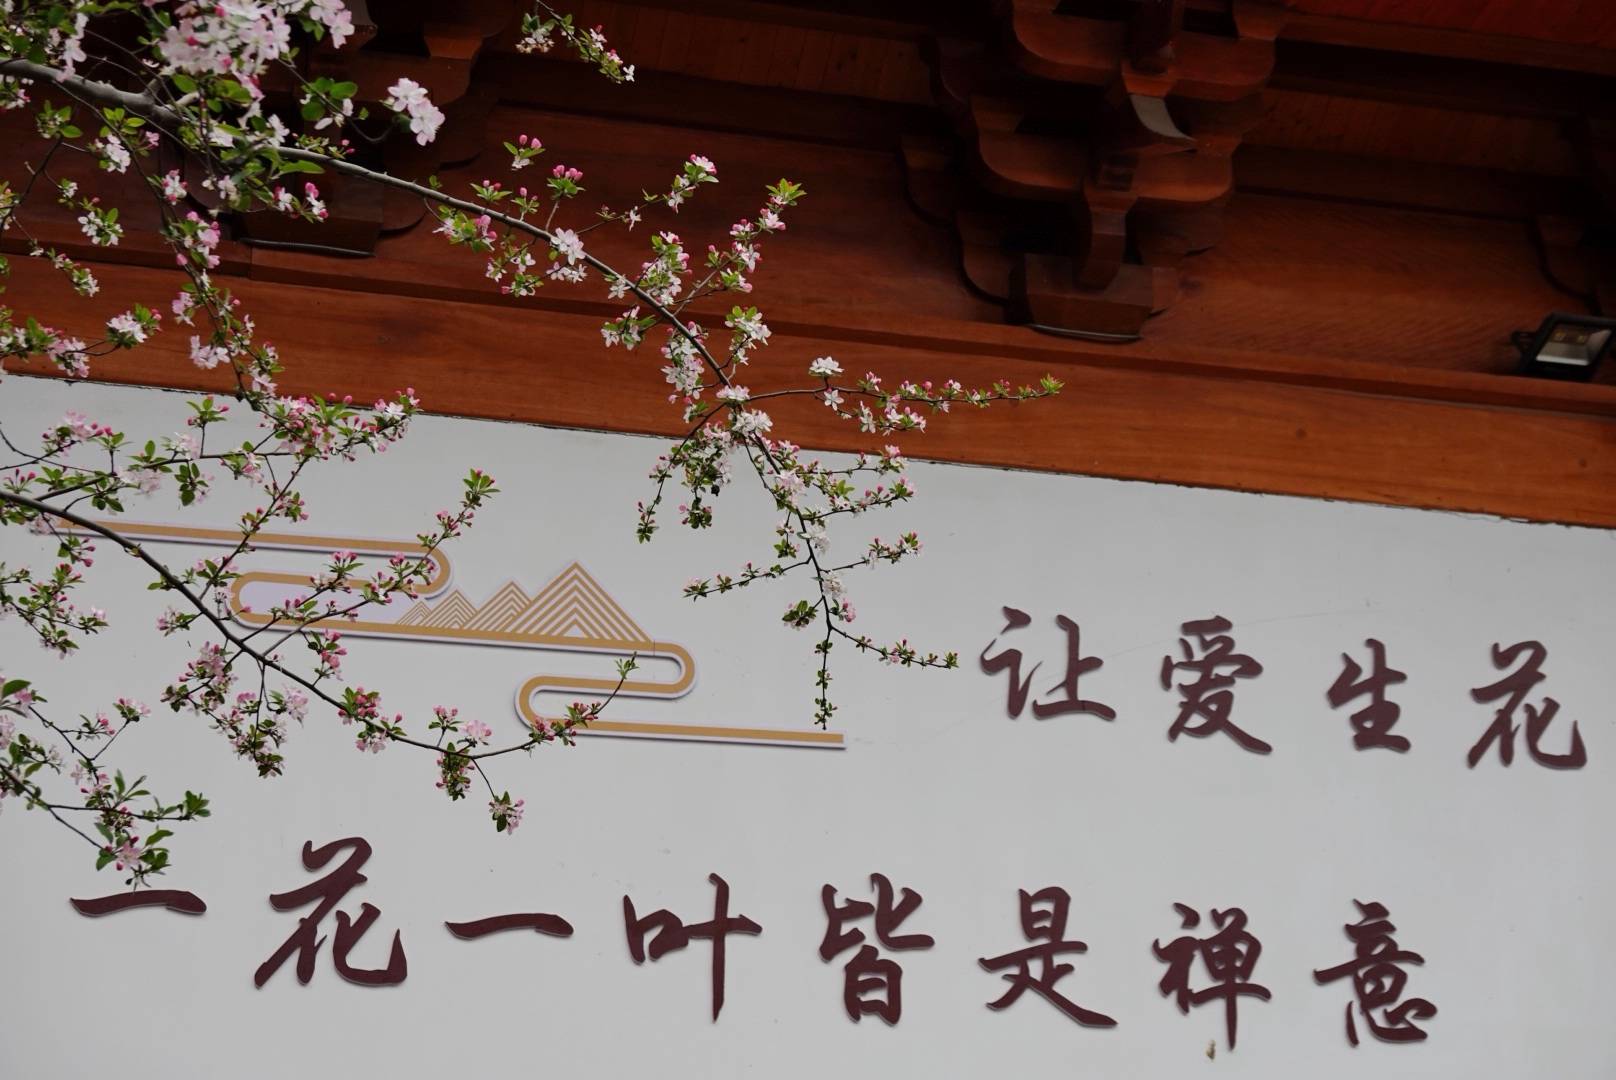 让爱生花
一花一叶皆是禅意